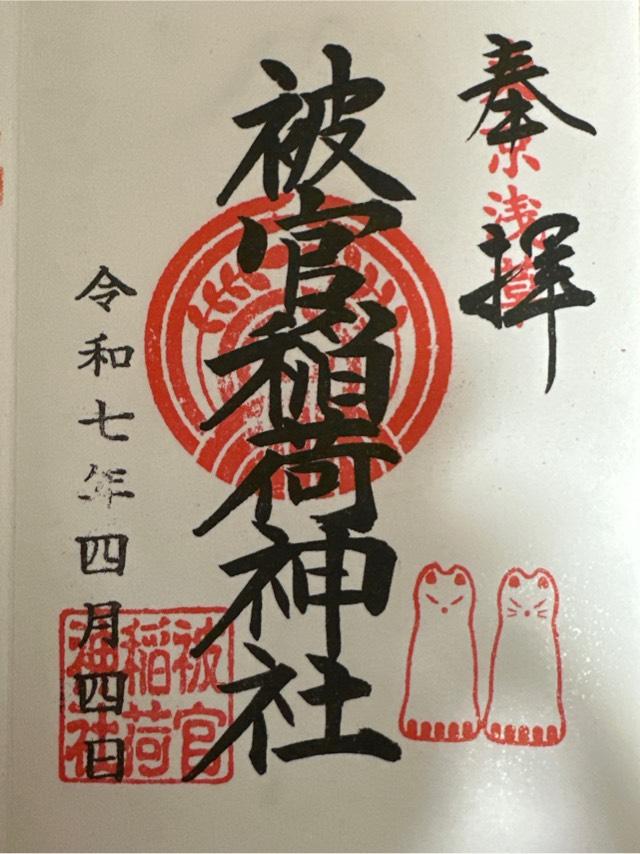 奉拝
東京浅草
被官稲荷神社
令和七年四月四日
被官
稲荷
神社